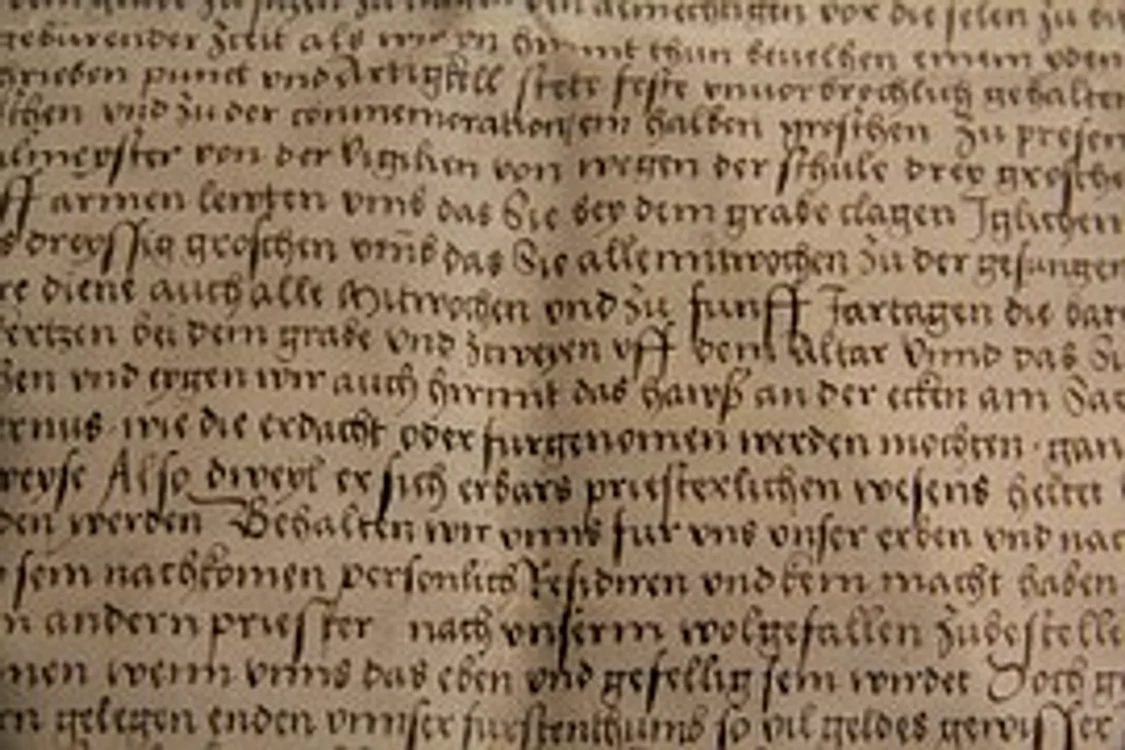 almechtigen vor die selen zu
geburender Zeit als wir yn hirmit thun beuelhen einem
punct vnd Artigkell stete feste vnuorbrochlich gehalten
vnd zu der commemeration ein halben groschen Zu presen
von der Vigilien von wegen der schule drey grosche
ff armen lewten vmb das Sie bey dem grabe clagen Iglichen
dreyssig groschen vmb das Sie alle mitwochen Zu der gesungen
diene auch alle Mitwochen vnd Zu funff Jartagen die
bei dem grabe vnd Zweyen vff dem Altar Vnnd das
vnd eygen wir auch hirmit das hawß an der ecken am
wie die erdacht oder furgenomen werden mochten gan
weyse Also diweyl er sich erbars priesterlichen wesens heltet
den werden Behalten wir vnns fur vns vnser erben vnd nac
sein nachkomen personlich Residiren vnd kein macht haben
n andern priester nach vnserm wolgefallen Zubestelle
wenn vnns das eben vnd gefellig sein wirdet Doch
n gelegen enden vnnser furstenthumb so vil geldes gewisser